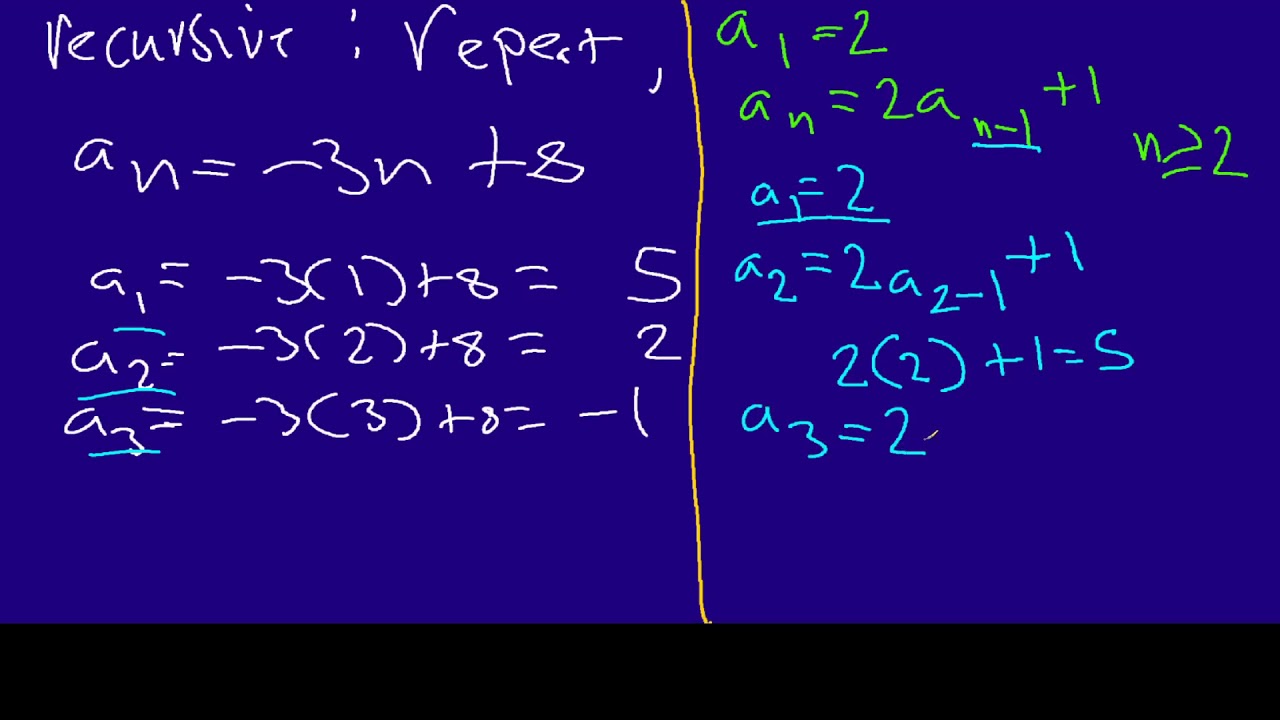 recursive : repeat,
aₙ = -3n + 8
a₁ = -3(1)+8 = 5
a₂ = -3(2)+8 = 2
a₃ = -3(3)+8 = -1
a₁ = 2
aₙ = 2aₙ₋₁ + 1
n ≥ 2
a₁ = 2
a₂ = 2a₂₋₁ + 1
2(2) + 1 = 5
a₃ = 2